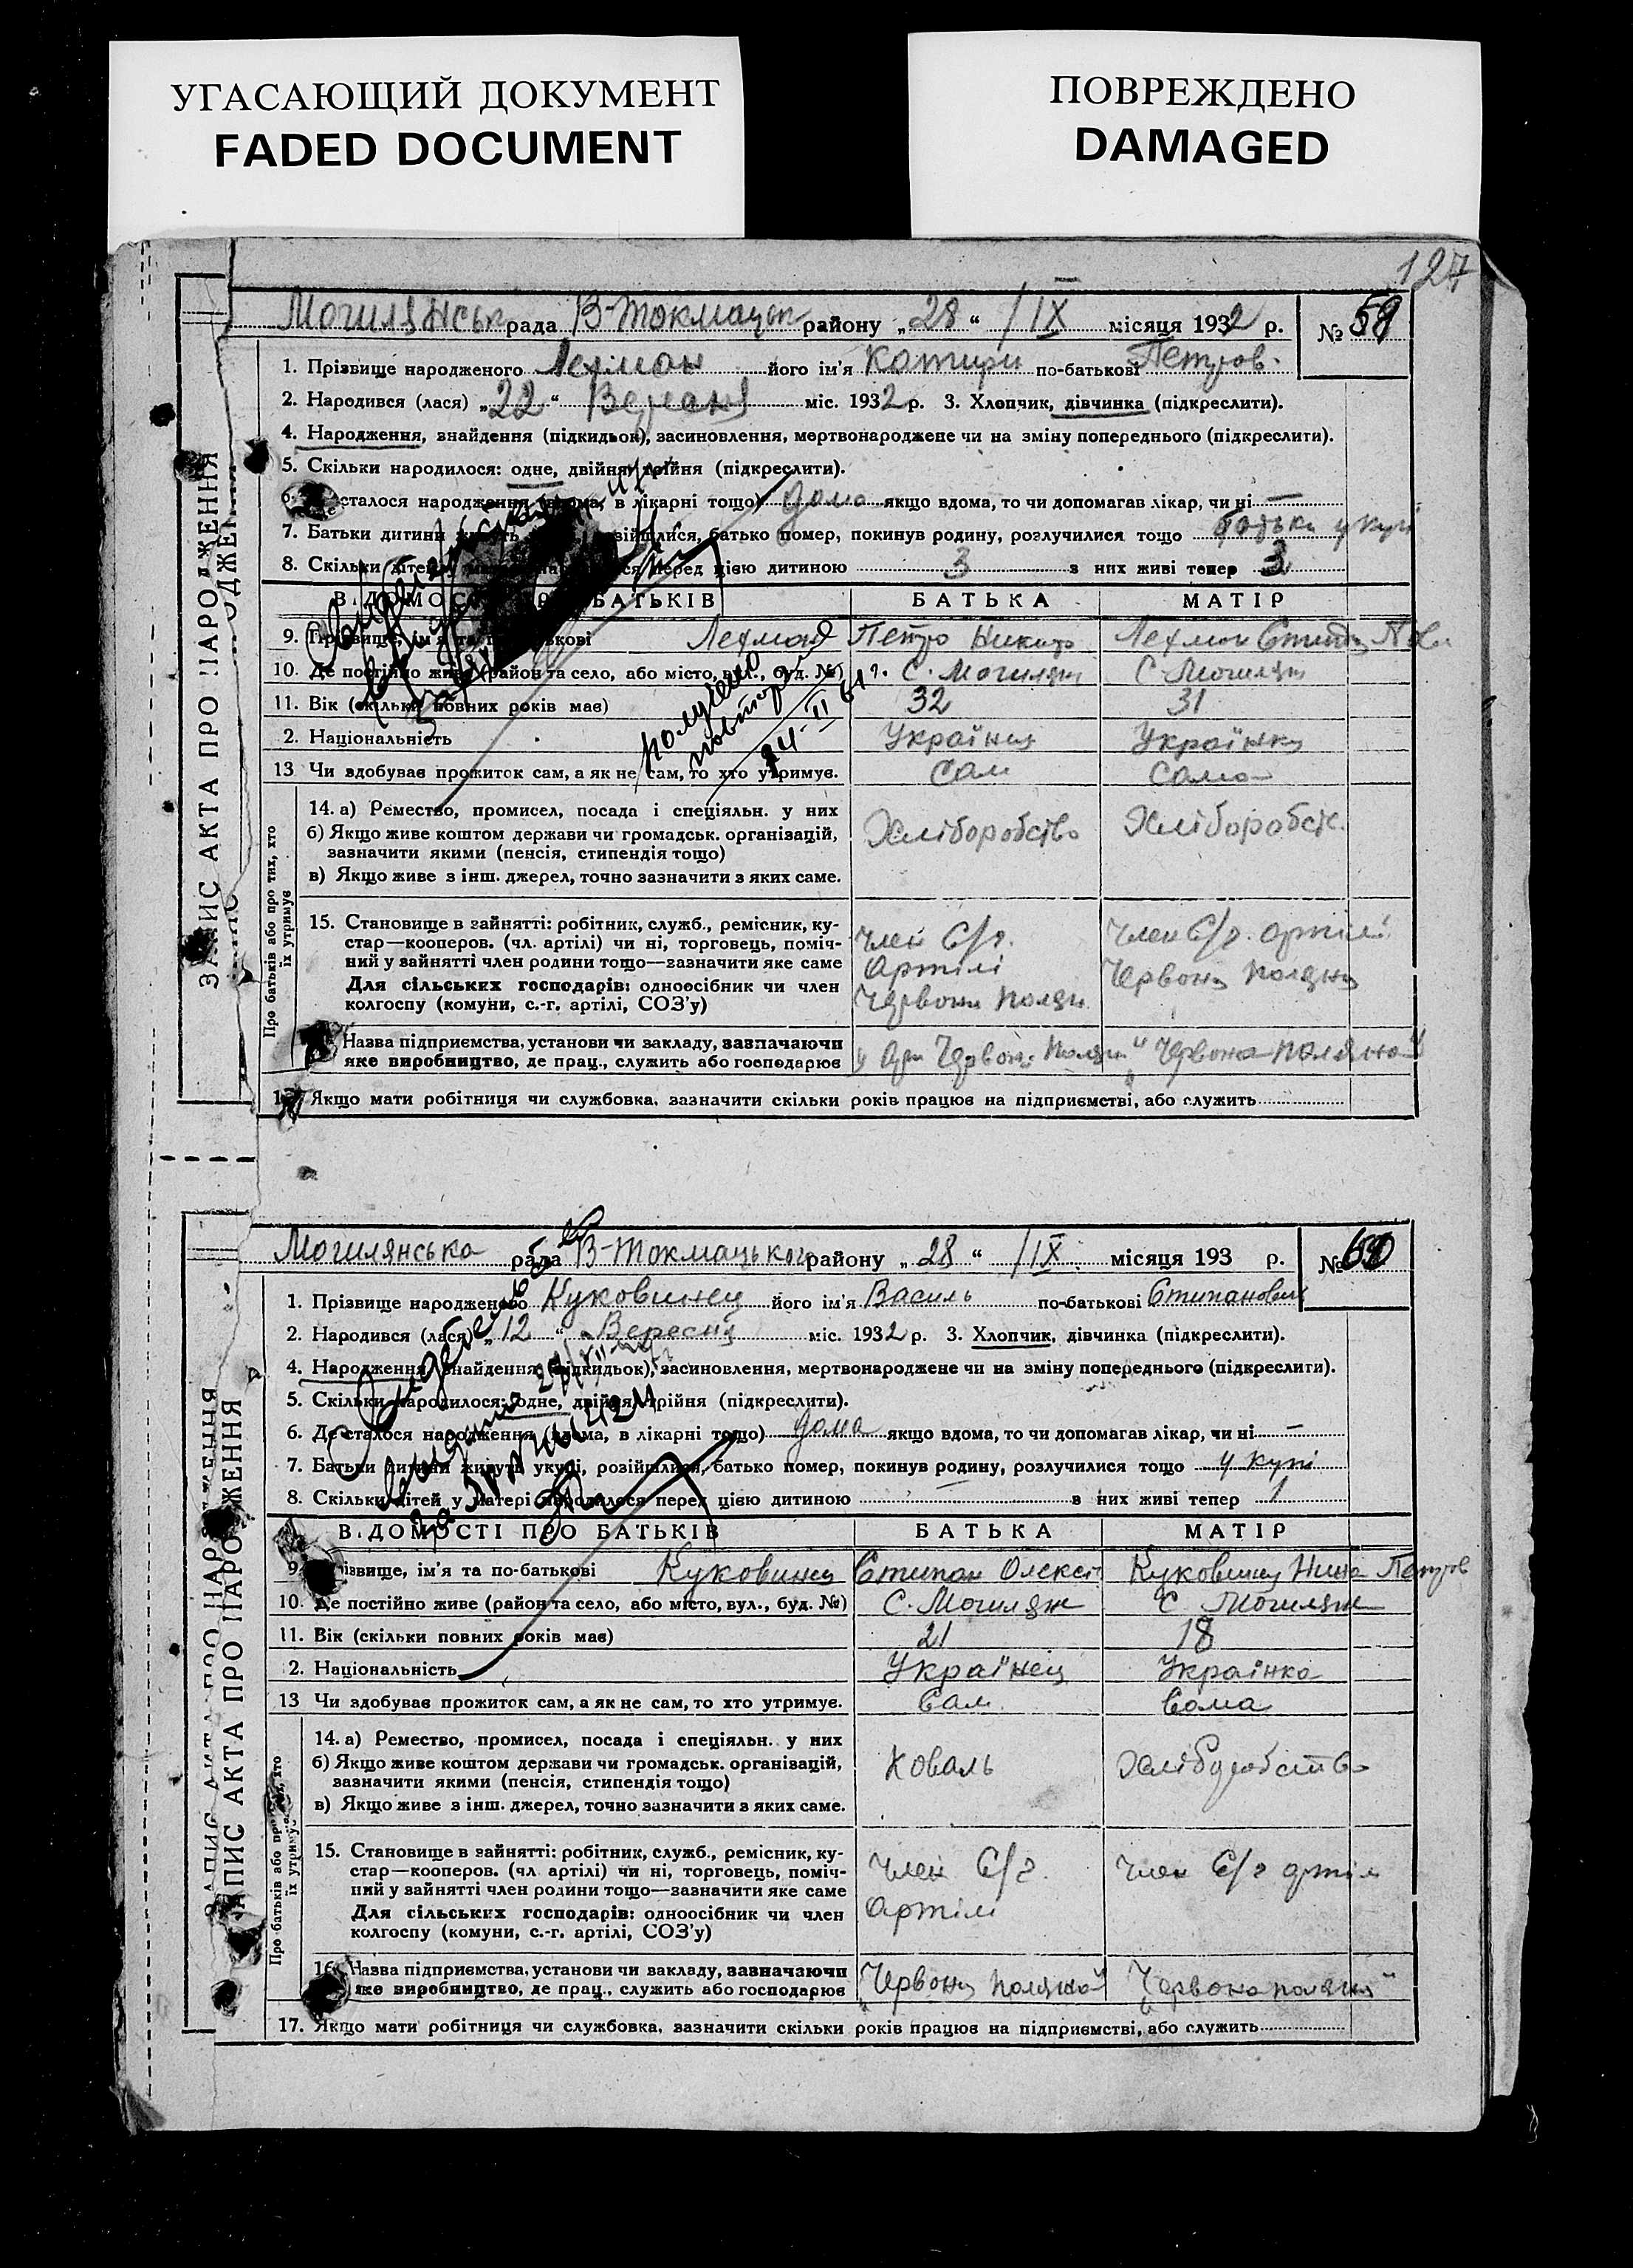 УГАСАЮЩИЙ ДОКУМЕНТ
FADED DOCUMENT
ПОВРЕЖДЕНО
DAMAGED
127
ЗАПИС АКТА ПРО НАРОДЖЕННЯ
Могилянськ рада В-Токмацьк району „28“ /IX місяця 1932 р. № 59
1. Прізвище народженого його ім'я Катери по-батькові Петров.
2. Народився (лася) „22“ Вересня міс. 1932 р. 3. Хлопчик, дівчинка (підкреслити).
4. Народження, знайдення (підкидьок), засиновлення, мертвонароджене чи на зміну попереднього (підкреслити).
5. Скільки народилося: одне, двійня, трійня (підкреслити).
сталося народження (вдома, в лікарні тощо) дома якщо вдома, то чи допомагав лікар, чи ні —
7. Батьки дитини батько помер, покинув родину, розлучилися тощо батьки укупі
8. Скільки дітей перед цією дитиною 3 з них живі тепер 3
ВІДОМОСТІ ПРО БАТЬКІВ БАТЬКА МАТІР
9. Прізвище, ім'я та по-батькові Петро Никит
10. Де постійно живе (район та село, або місто, вул., буд. №) С. Могилян С. Могилян
11. Вік (скільки повних років має) 32 31
2. Національність Українец Українка
13 Чи здобуває прожиток сам, а як не сам, то хто утримує. Сам Сама
получено
повторно
14-II 61 г.
Про батьків або про тих, хто їх утримує
14. а) Ремество, промисел, посада і спеціяльн. у них
б) Якщо живе коштом держави чи громадськ. організацій,
зазначити якими (пенсія, стипендія тощо)
в) Якщо живе з інш. джерел, точно зазначити з яких саме.
Хліборобство Хліборобст.
15. Становище в зайнятті: робітник, служб., ремісник, ку-
стар—кооперов. (чл. артілі) чи ні, торговець, поміч-
ний у зайнятті член родини тощо—зазначити яке саме
Для сільських господарів: одноосібник чи член
колгоспу (комуни, с.-г. артілі, СОЗ'у)
Член С/г.
Артілі
Червона Полян
Член С/г. артілі
Червона Поляна
Назва підприємства, установи чи закладу, зазначаючи
яке виробництво, де прац., служить або господарює
„Червона Поляна“
17. Якщо мати робітниця чи службовка, зазначити скільки років працює на підприємстві, або служить
ЗАПИС АКТА ПРО НАРОДЖЕННЯ
Могилянська рада В-Токмацького району „28“ /IX. місяця 193 р. № 60
1. Прізвище народженого Куковинец його ім'я Василь по-батькові Стипанович
2. Народився (лася) „12“ Вересня міс. 1932 р. 3. Хлопчик, дівчинка (підкреслити).
4. Народження, знайдення (підкидьок), засиновлення, мертвонароджене чи на зміну попереднього (підкреслити).
5. Скільки народилося: одне, двійня, трійня (підкреслити).
6. Де сталося народження (вдома, в лікарні тощо) дома якщо вдома, то чи допомагав лікар, чи ні —
7. Батьки дитини живуть укупі, розійшлися, батько помер, покинув родину, розлучилися тощо укупі
8. Скільки дітей у матері народилося перед цією дитиною — з них живі тепер 1
ВІДОМОСТІ ПРО БАТЬКІВ БАТЬКА МАТІР
9. Прізвище, ім'я та по-батькові Куковинец Стипан Олексі Куковинец Нина Петров
10. Де постійно живе (район та село, або місто, вул., буд. №) С. Могилян С. Могилян
11. Вік (скільки повних років має) 21 18
2. Національність Українец Українка
13 Чи здобуває прожиток сам, а як не сам, то хто утримує. Сам Сама
Про батьків або про тих, хто їх утримує
14. а) Ремество, промисел, посада і спеціяльн. у них
б) Якщо живе коштом держави чи громадськ. організацій,
зазначити якими (пенсія, стипендія тощо)
в) Якщо живе з інш. джерел, точно зазначити з яких саме.
Коваль Хліборобство
15. Становище в зайнятті: робітник, служб., ремісник, ку-
стар—кооперов. (чл. артілі) чи ні, торговець, поміч-
ний у зайнятті член родини тощо—зазначити яке саме
Для сільських господарів: одноосібник чи член
колгоспу (комуни, с.-г. артілі, СОЗ'у)
Член С/г.
Артілі
Член С/г артілі
16. Назва підприємства, установи чи закладу, зазначаючи
яке виробництво, де прац., служить або господарює
„Червона Поляна“ „Червона поляна“
17. Якщо мати робітниця чи службовка, зазначити скільки років працює на підприємстві, або служить